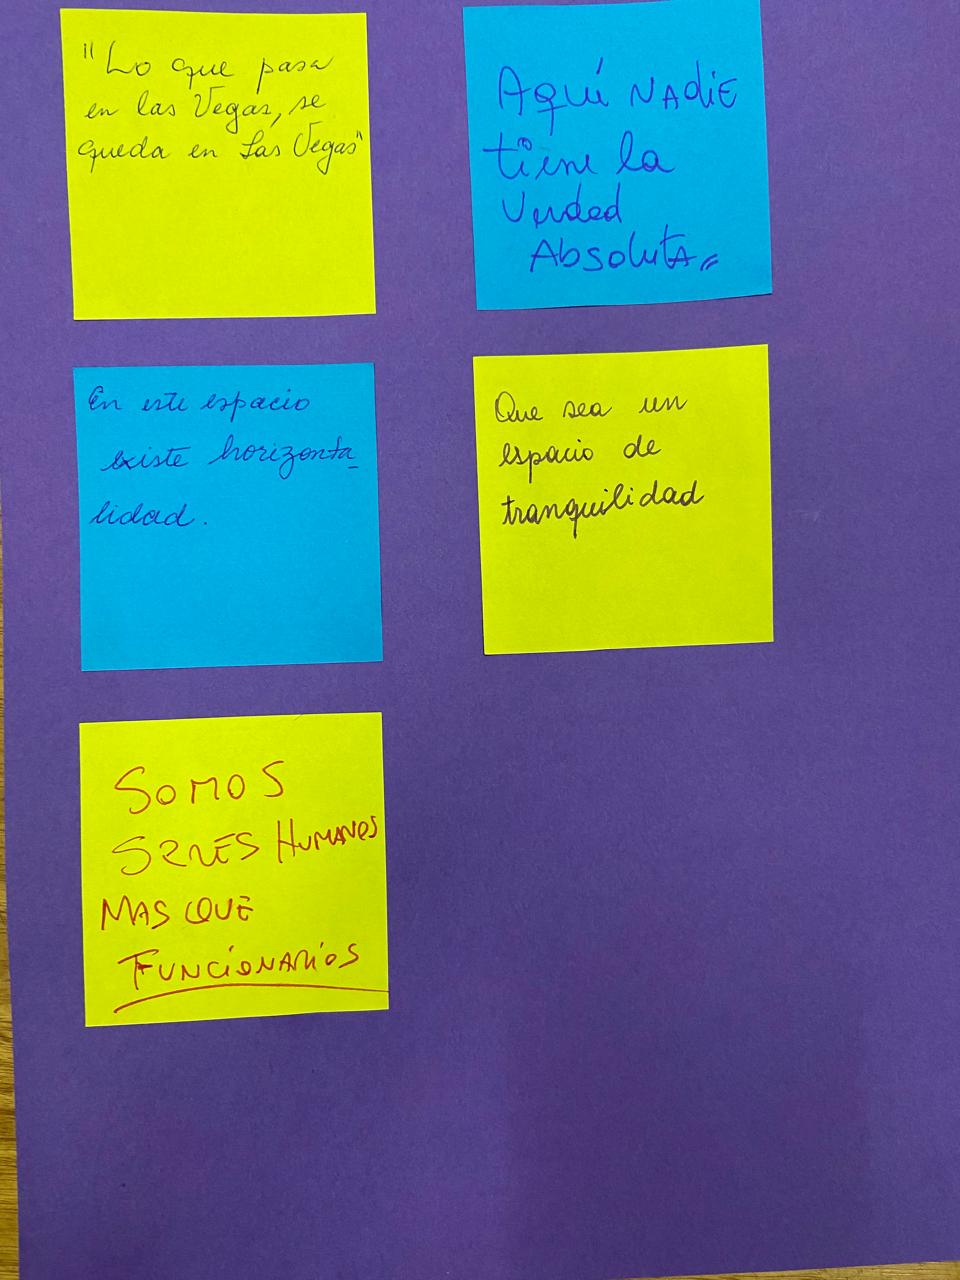 "Lo que pasa
en las Vegas, se
queda en Las Vegas"
Aquí NAdiE
tiene la
Verdad
Absoluta
En este espacio
existe horizonta-
lidad.
Que sea un
espacio de
tranquilidad
SOMOS
SERES HUMANOS
MAS QUE
FUNCIONARIOS